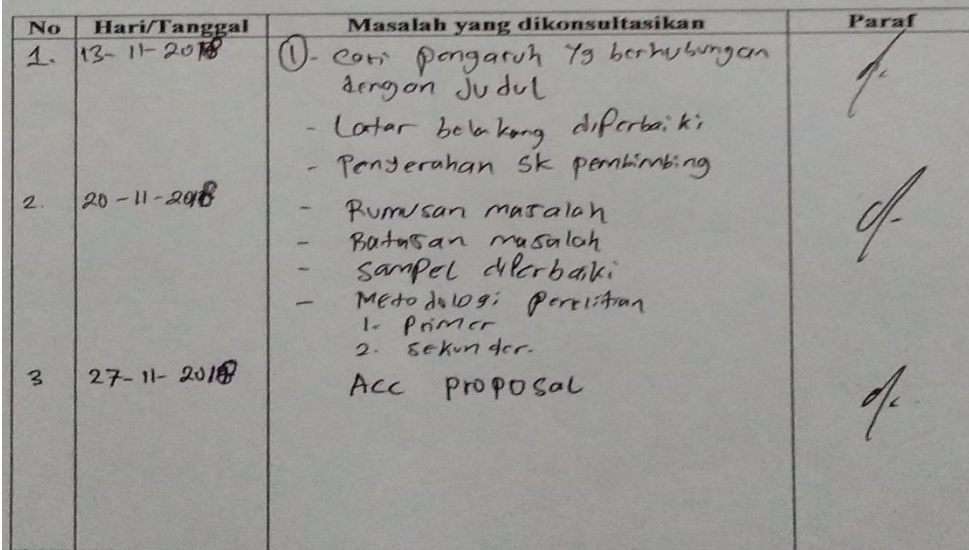 No Hari/Tanggal Masalah yang dikonsultasikan Paraf
1. 13-11-2018 ① - cari pengaruh yg berhubungan
dengan Judul
- Latar belakang diperbaiki
- Penyerahan SK pembimbing
2. 20-11-2018 - Rumusan masalah
- Batasan masalah
- Sampel diperbaiki
- Metodologi penelitian
1. Primer
2. Sekunder.
3 27-11-2018 Acc proposal